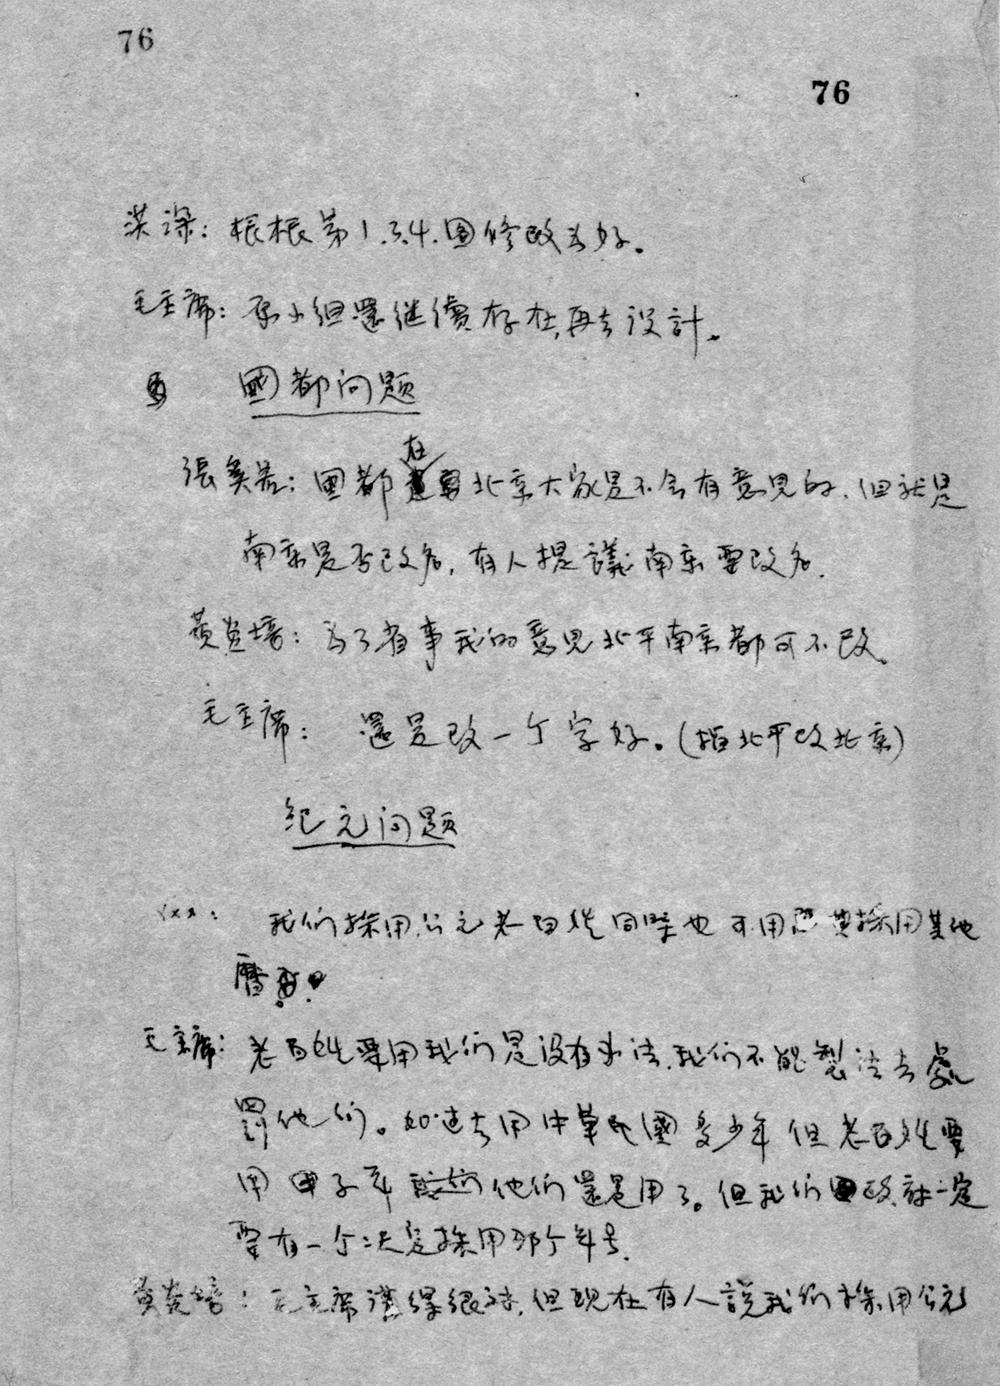 76
76
洪深：根据第1.3.4.图修改为好。
毛主席：原小组還继續存在,再去设計。
國都问题
張奚若：國都在北京大家是不会有意見的.但就是
南京是否改名,有人提議南京要改名.
黄炎培：为了省事我的意见北平南京都可不改。
毛主席：還是改一个字好。(指北平改北京)
纪元问题
×××：我们採用公元老百姓同時也可用採用其他
曆
毛主席：老百姓要用我们是没有办法.我们不能製法去處
罰他们。如过去用中華民國多少年但老百姓要
用甲子年他们還是用了。但我们政府一定
要有一个决定採用那个年号.
黄炎培：毛主席講得很对.但现在有人說我们採用公元